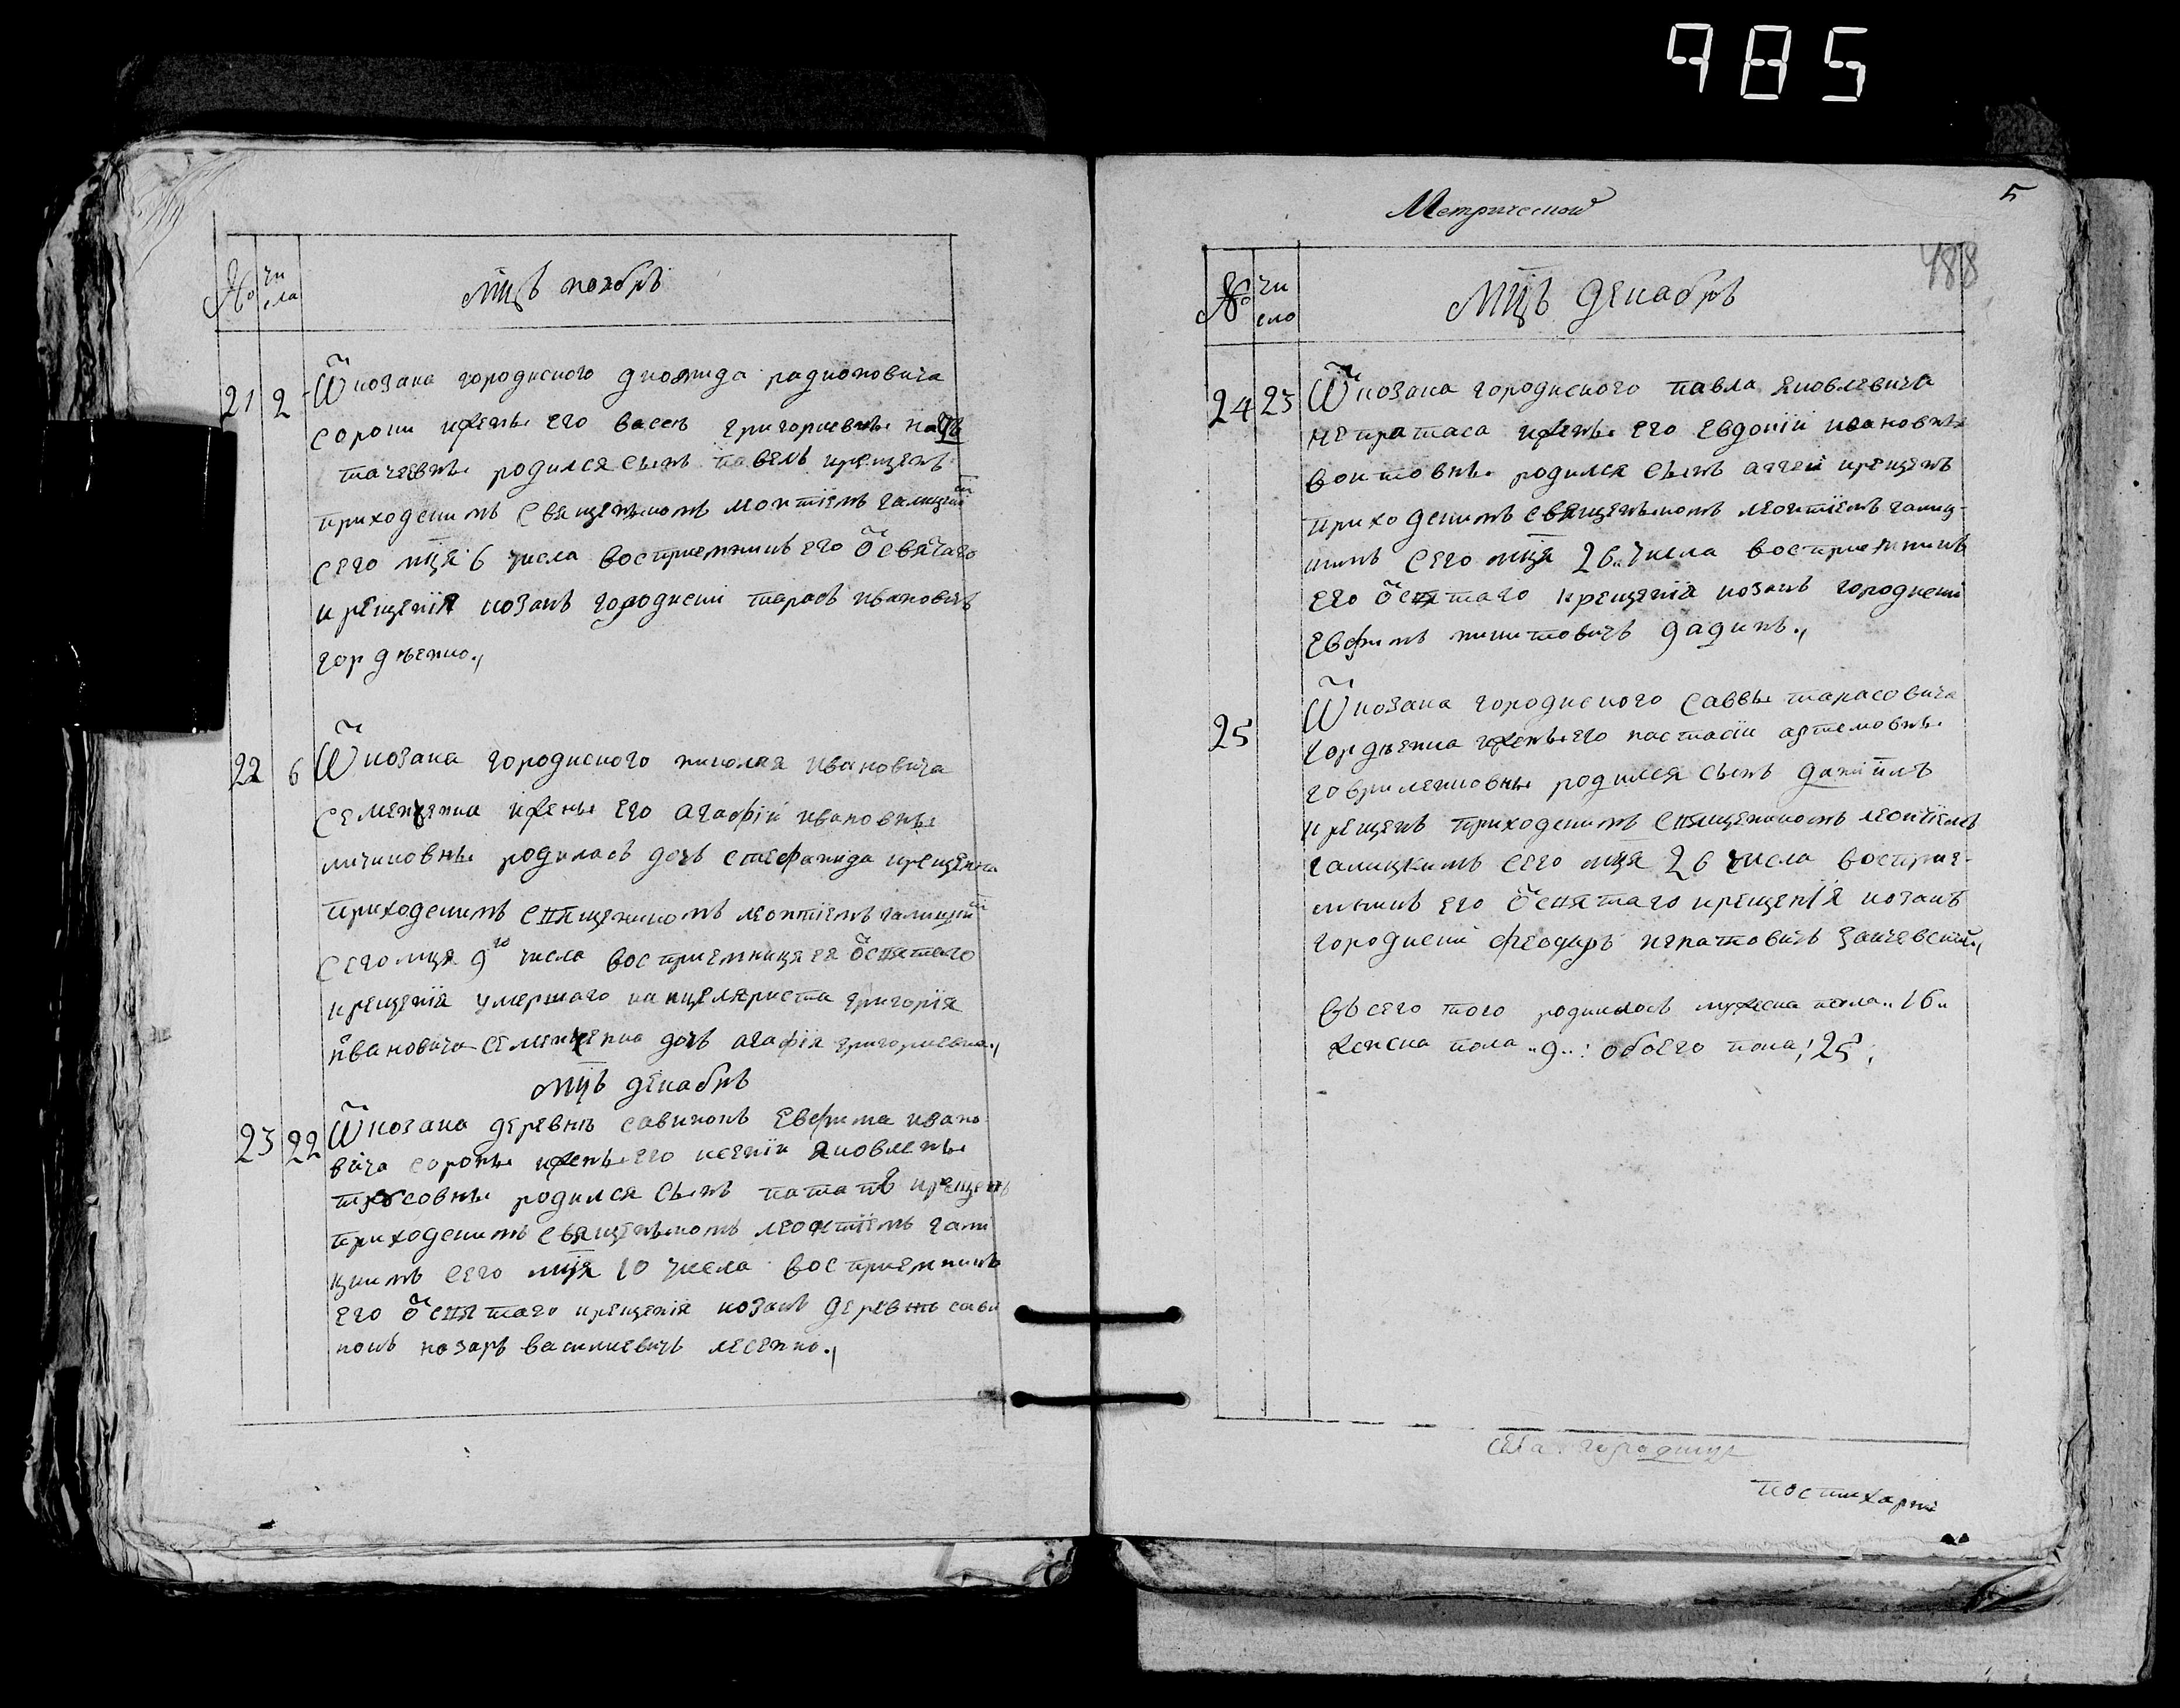 985
№ чи
сла
мц҃ъ ноябрь
21 2 Ѿ козака городиского диомида радионовича
сороки и жены его васси григориевны
родился сынъ павелъ крещенъ
приходскимъ священикомъ леонтіемъ галицкім
сего мца 6 числа восприемникъ его ѿ святаго
крещенія козакъ городискій тарасъ ивановичъ
гордѣенко.,
22 6 Ѿ козака городиского николая ивановича
семенченка и жены его агафіи ивановны
родилась дочь стефанида крещенна
приходскимъ священикомъ леонтіемъ галицкім
сего мца 9го числа восприемница ея ѿ святаго
крещенія умершаго канцеляриста григорія
ивановича семенченка дочь агафія григориевна.,
мц҃ъ декабрь
23 22 Ѿ козака деревнѣ савинокъ евфима ивано
вича сороки и жены его ксеніи яковлены
родился сынъ крещенъ
приходскимъ священикомъ леонтіемъ гали
цкимъ сего мца 10 числа восприемникъ
его ѿ святаго крещенія козакъ деревнѣ сави
нокъ назаръ василиевичъ лесенко.,
Метрической
5
488
№ чи
сло
мц҃ъ декабрь
24 23 Ѿ козака городиского павла яковлевича
и жены его евдокіи ивановны
войтовны родился сынъ аггей крещенъ
приходскимъ священикомъ леонтіемъ галиц-
кимъ сего мца 26 числа восприемникъ
его ѿ святаго крещенія козакъ городискій
евфимъ никитовичъ дадикъ.,
25 Ѿ козака городиского саввы тарасовича
гордѣенка и жены его настасіи артемовны
гавриленковны родился сынъ даніилъ
крещенъ приходскимъ священикомъ леонтіемъ
галицкимъ сего мца 26 числа восприе-
мникъ его ѿ святаго крещенія козакъ
городискій феодоръ игнатовичъ заичевский.,
Всего того родилось мужеска пола.. 16..
женска пола ..9..: обоего пола: 25:
села городища